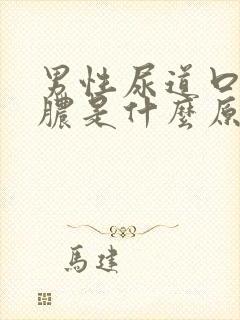 男性尿道口
膿是什麼原
馬建